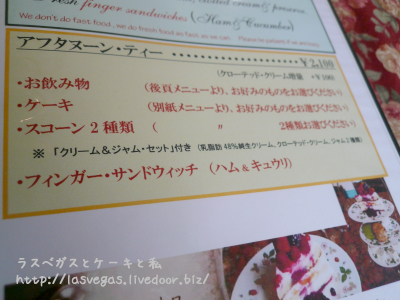 finger sandwiches (Ham & Cucumber)
We don't do fast food, we do fresh food as fast as we can.
アフタヌーン・ティー ¥2,100
(クローテッド・クリーム増量 +¥100)
・お飲み物 (後頁メニューより、お好みのものをお選びください)
・ケーキ (別紙メニューより、お好みのものをお選びください)
・スコーン2種類 ( 〃 2種類お選びください)
※「クリーム&ジャム・セット」付き (乳脂肪48%純生クリーム、クローテッド・クリーム、ジャム2種類)
・フィンガー・サンドウィッチ (ハム&キュウリ)
ラスベガスとケーキと私
http://lasvegas.livedoor.biz/